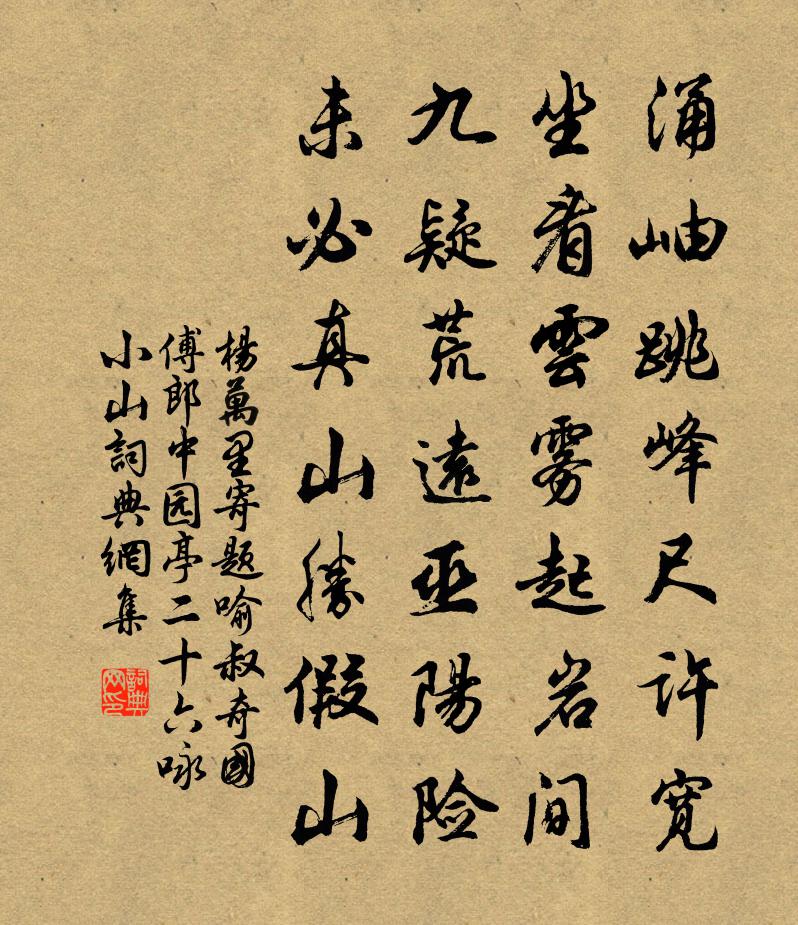 涌岫跳峰尺许寬
坐看雲雾起岩间
九疑荒遠巫陽险
未必真山勝假山
楊萬里寄题喻叔奇國
傅郎中园亭二十六咏
小山詞典網集
詞典
网印